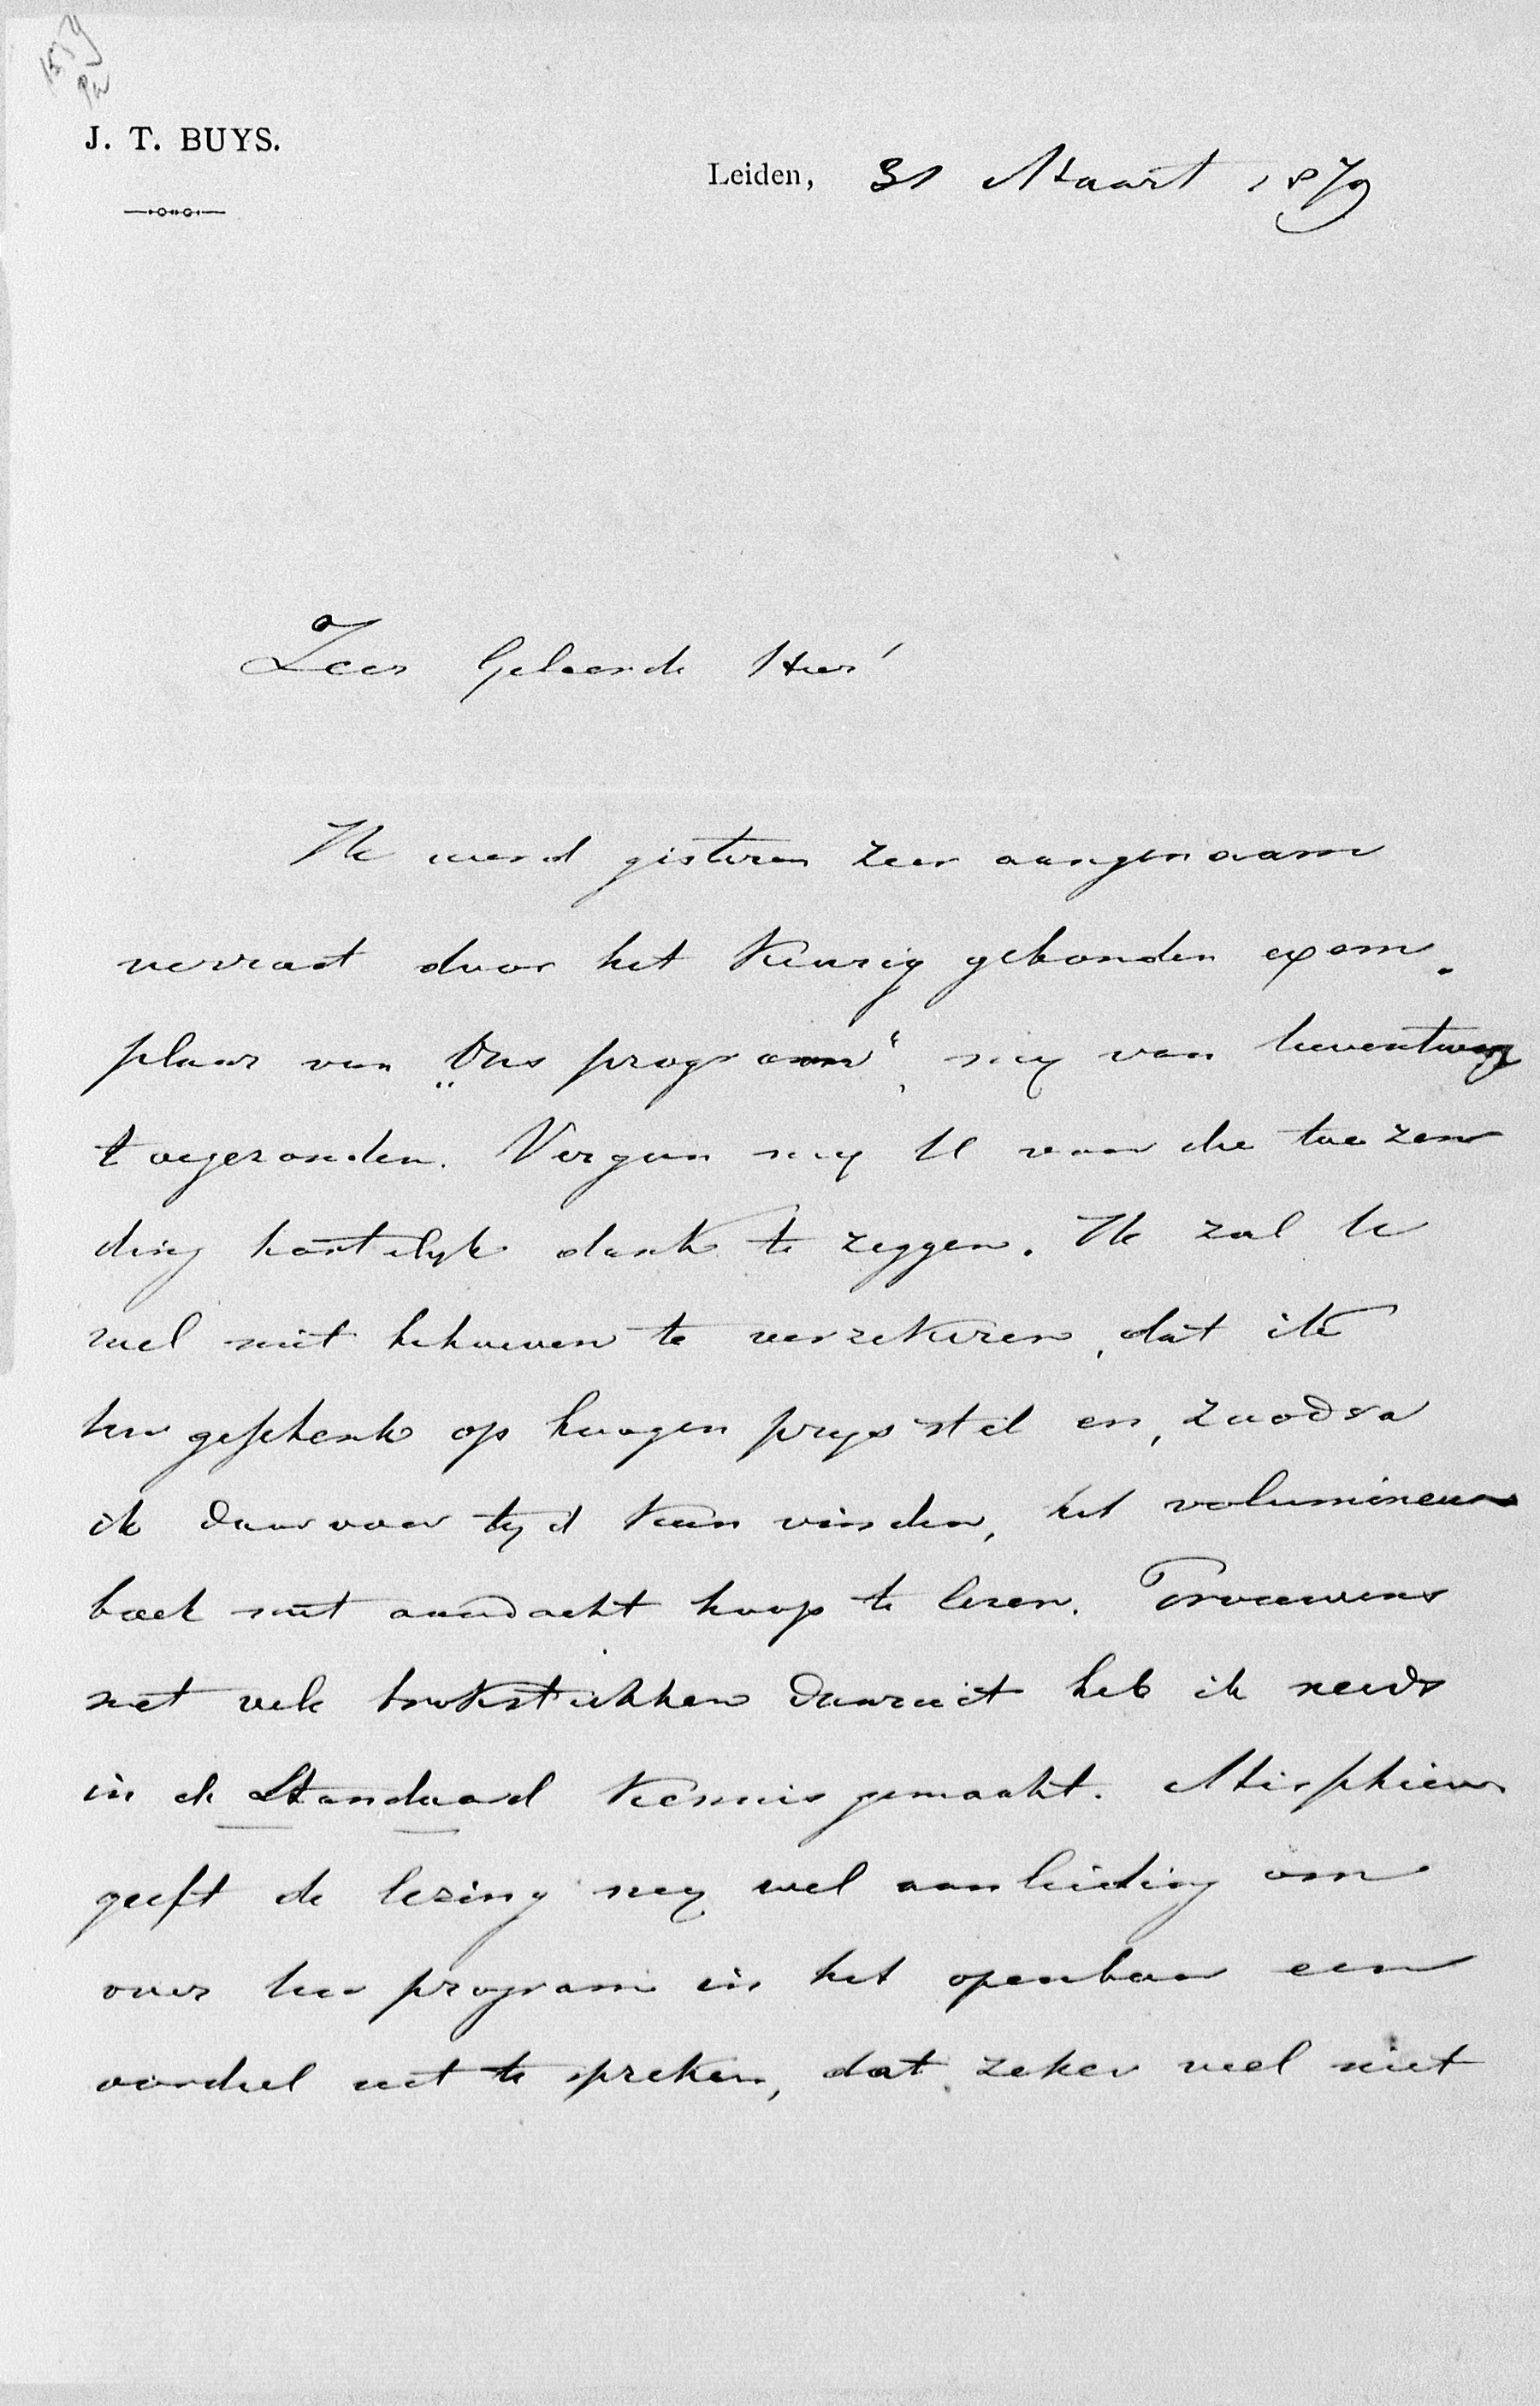 J. T. BUYS.
Leiden, 31 Maart 1879
Zeer Geleerde Heer!
Ik werd gisteren zeer aangenaam
verrast door het keurig gebonden exem-
plaar van „Ons program", mij van Uwentweg
toegezonden. Vergun mij U voor die toezen
ding hartelijk dank te zeggen. Ik zal U
wel niet behoeven te verzekeren, dat ik
Uw geschenk op hoogen prijs stel en, zoodra
ik daarvoor tijd kan vinden, het volumineus
boek met aandacht hoop te lezen. Trouwens
met vele brokstukken daaruit heb ik reeds
in de Standaard kennis gemaakt. Misschien
geeft de lezing mij wel aanleiding om
over Uw program in het openbaar een
oordeel uit te spreken, dat zeker wel niet